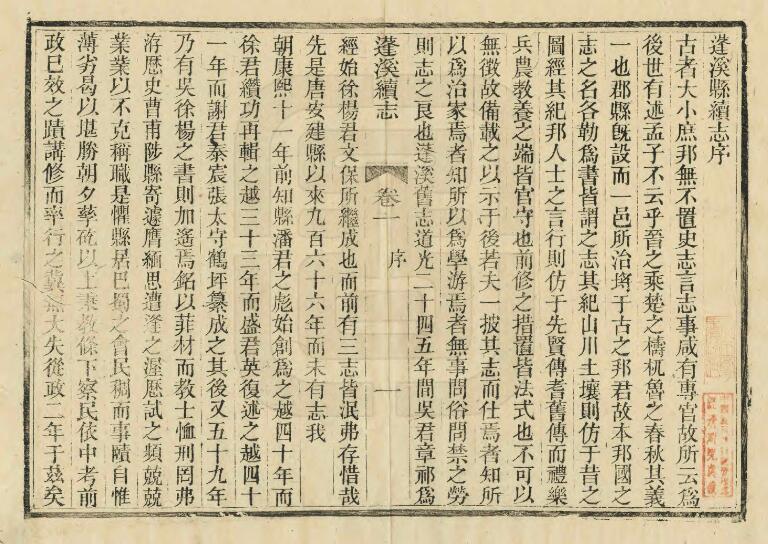 蓬溪縣續志序
古者大小庶邦無不置史志言志事咸有專官故所云爲
後世有述孟子不云乎晉之乘楚之檮杌魯之春秋其義
一也郡縣旣設而一邑所治埒于古之邦君故本邦國之
志之名各勒爲書皆謂之志其紀山川土壤則仿于昔之
圖經其紀邦人士之言行則仿于先賢傳耆舊傳而禮樂
兵農敎養之端皆官守也前修之措置皆法式也不可以
無徵故備載之以示于後若夫一披其志而仕焉者知所
以爲治家焉者知所以爲學游焉者無事問俗問禁之勞
則志之艮也蓬溪舊志道光二十四五年間吳君章祁爲
蓬溪續志
卷一
序
一
經始徐楊君文保所繼成也而前有三志皆泯弗存惜哉
先是唐安建縣以來九百六十六年而未有志我
朝康熙十一年前知縣潘君之彪始創爲之越四十年而
徐君纘功再輯之越三十三年而盛君英復述之越四十
一年而謝君泰宸張太守鶴坪纂成之其後又五十九年
乃有吳徐楊之書則加遙焉銘以菲材而教士恤刑罔弗
洊歷史曹甫陟縣寄遽膺緬思遭逢之渥歷試之頻兢兢
業業以不克稱職是懼縣居巴蜀之會民稠而事賾自惟
薄劣曷以堪勝朝夕孳矻以上秉教條下察民依中考前
政已效之蹟講修而率行之冀無大失從政二年于茲矣